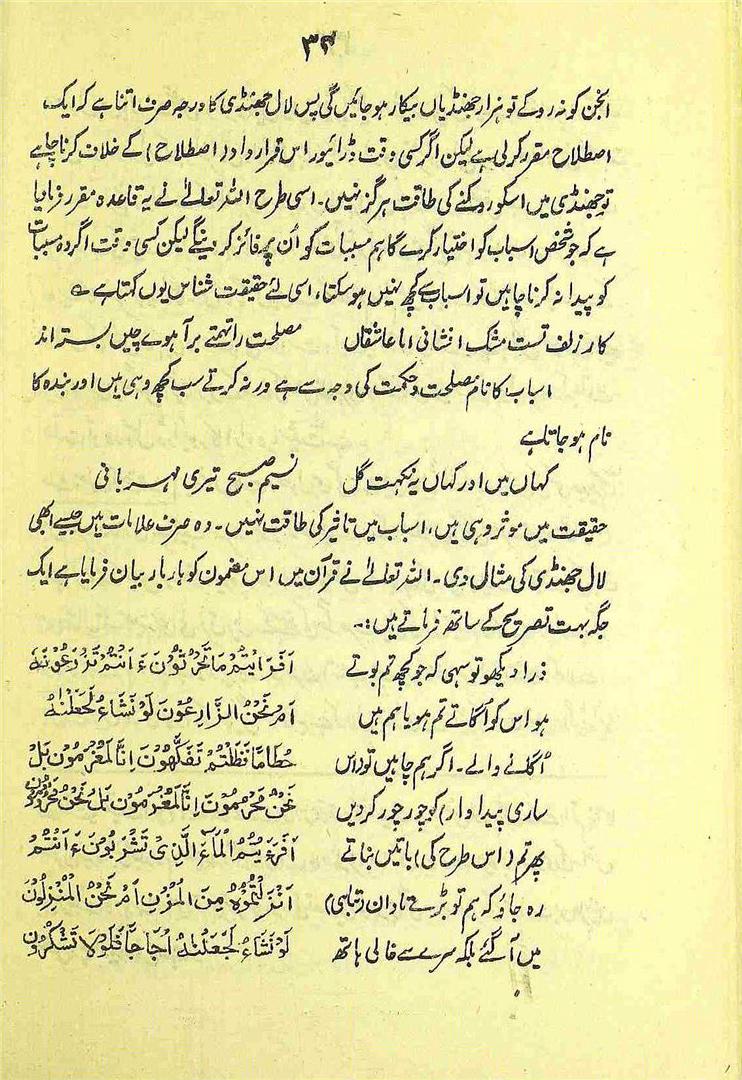 ۳۴
انجن کو نہ روکے تو ہزار جھنڈیاں بیکار ہو جائیں گی پس لال جھنڈی کا درجہ صرف اتنا ہے کہ ایک
اصطلاح مقرر کر لی ہے لیکن اگر کسی وقت ڈرائیور اس قرار داد (اصطلاح) کے خلاف کرنا چاہے
تو جھنڈی میں اسکو روکنے کی طاقت ہرگز نہیں۔ اسی طرح اللہ تعالےٰ نے یہ قاعدہ مقرر فرمایا
ہے کہ جو شخص اسباب کو اختیار کرے گا ہم مسببات کو اُن پر فائز کر دینگے لیکن کسی وقت اگر وہ مسببات
کو پیدا نہ کرنا چاہیں تو اسباب سے کچھ نہیں ہو سکتا، اسی لئے حقیقت شناس یوں کہتا ہے ؎
کار زلف تست مشک افشانی اما عاشقاں مصلحت را تہمتے بر آہوے چیں بستہ اند
اسباب کا نام مصلحت و حکمت کی وجہ سے ہے ورنہ کرتے سب کچھ وہی ہیں اور بندہ کا
نام ہو جاتا ہے
کہاں میں اور کہاں یہ نکہت گل نسیم صبح تیری مہربانی
حقیقت میں موثر وہی ہیں، اسباب میں تاثیر کی طاقت نہیں۔ وہ صرف علامات ہیں جیسے ابھی
لال جھنڈی کی مثال دی۔ اللہ تعالےٰ نے قرآن میں اس مضمون کو بار بار بیان فرمایا ہے ایک
جگہ بہت تصریح کے ساتھ فرماتے ہیں:۔
ذرا دیکھو تو سہی کہ جو کچھ تم بوتے اَفَرَاَیْتُمْ مَا تَحْرُثُوْنَ ءَ اَنْتُمْ تَزْرَعُوْنَهٗ
ہو اس کو اُگاتے تم ہو یا ہم ہیں اَمْ نَحْنُ الزَّارِعُوْنَ لَوْ نَشَآءُ لَجَعَلْنٰهُ
اُگانے والے۔ اگر ہم چاہیں تو (اس حُطَامًا فَظَلْتُمْ تَفَكَّهُوْنَ اِنَّا لَمُغْرَمُوْنَ بَلْ
ساری پیداوار) کو چور چور کردیں نَحْنُ مَحْرُمُوْنَ اِنَّا لَمُغْرَمُوْنَ بَلْ نَحْنُ مَحْرُوْمُوْنَ
پھر تم (اس طرح کی) باتیں بناتے اَفَرَءَیْتُمُ الْمَآءَ الَّذِیْ تَشْرَبُوْنَ ءَ اَنْتُمْ
رہ جاؤ کہ ہم تو بڑے تاوان (تباہی) اَنْزَلْتُمُوْهُ مِنَ الْمُزْنِ اَمْ نَحْنُ الْمُنْزِلُوْنَ
میں آ گئے بلکہ سرے سے خالی ہاتھ لَوْ نَشَآءُ لَجَعَلْنٰهُ اُجَاجًا فَلَوْلَا تَشْكُرُوْنَ